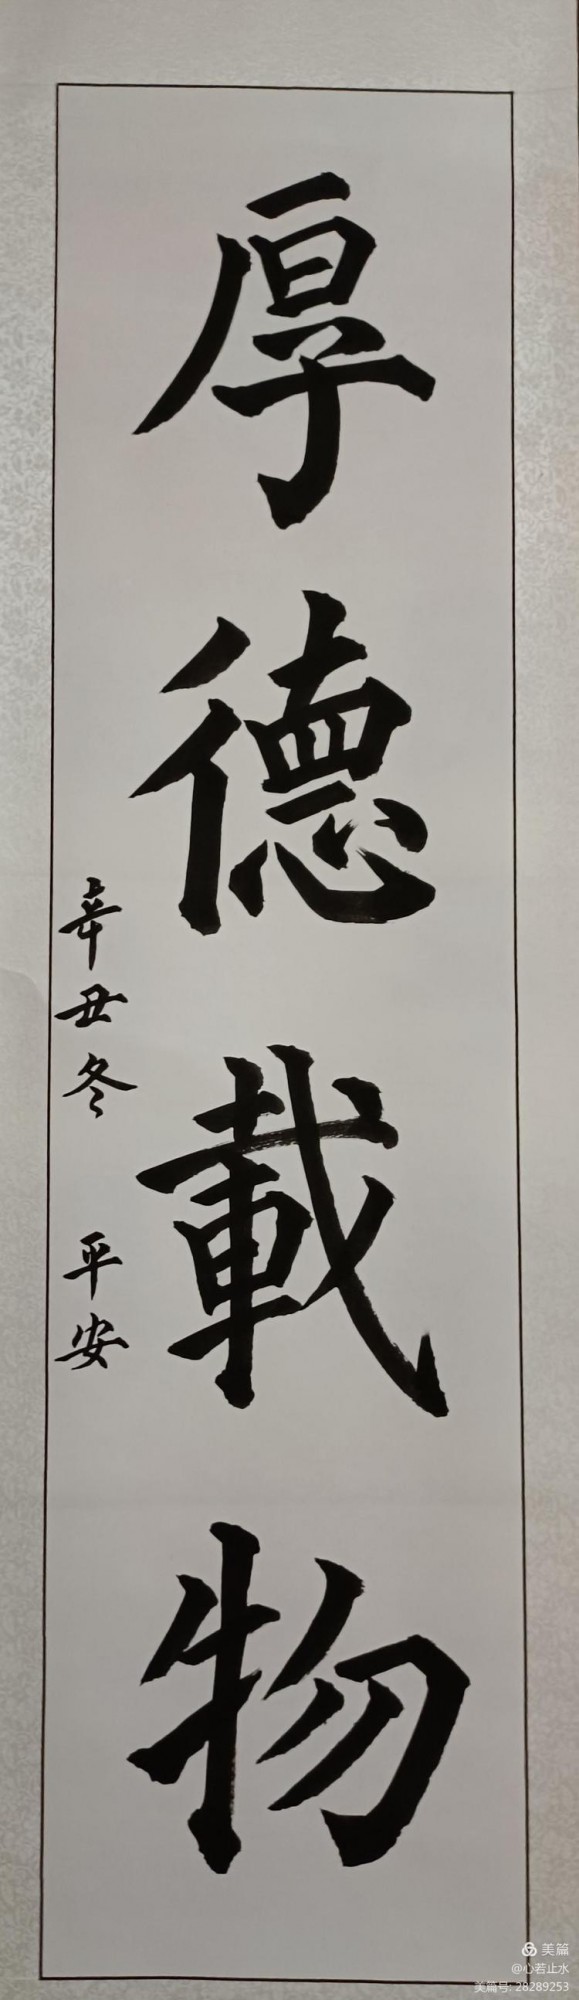 厚德載物
辛丑冬 平安
美篇
@心若止水
美篇号: 28289253